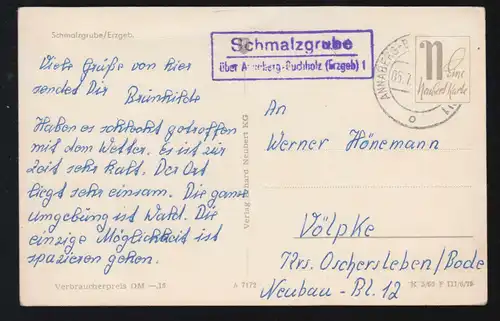 Schmalzgrube/Erzgeb.
Viele Grüße von hier
sendet Dir
Brünhilde
Haben es schlecht getroffen
mit dem Wetter. Es ist zur
Zeit sehr kalt. Der Ort
liegt sehr einsam. Die ganze
umgebung ist Wald. Die
einzige Möglichkeit ist
spazieren gehen.
Verbraucherpreis DM —,15
Verlag Erhard Neubert KG
A 7172
Schmalzgrube
über Annaberg-Buchholz (Erzgeb) 1
ANNABERG-B
N
Eine
Neubert Karte
An
Werner Hönemann
Völpke
Krs. Oschersleben/Bode
Neubau-Bl. 12